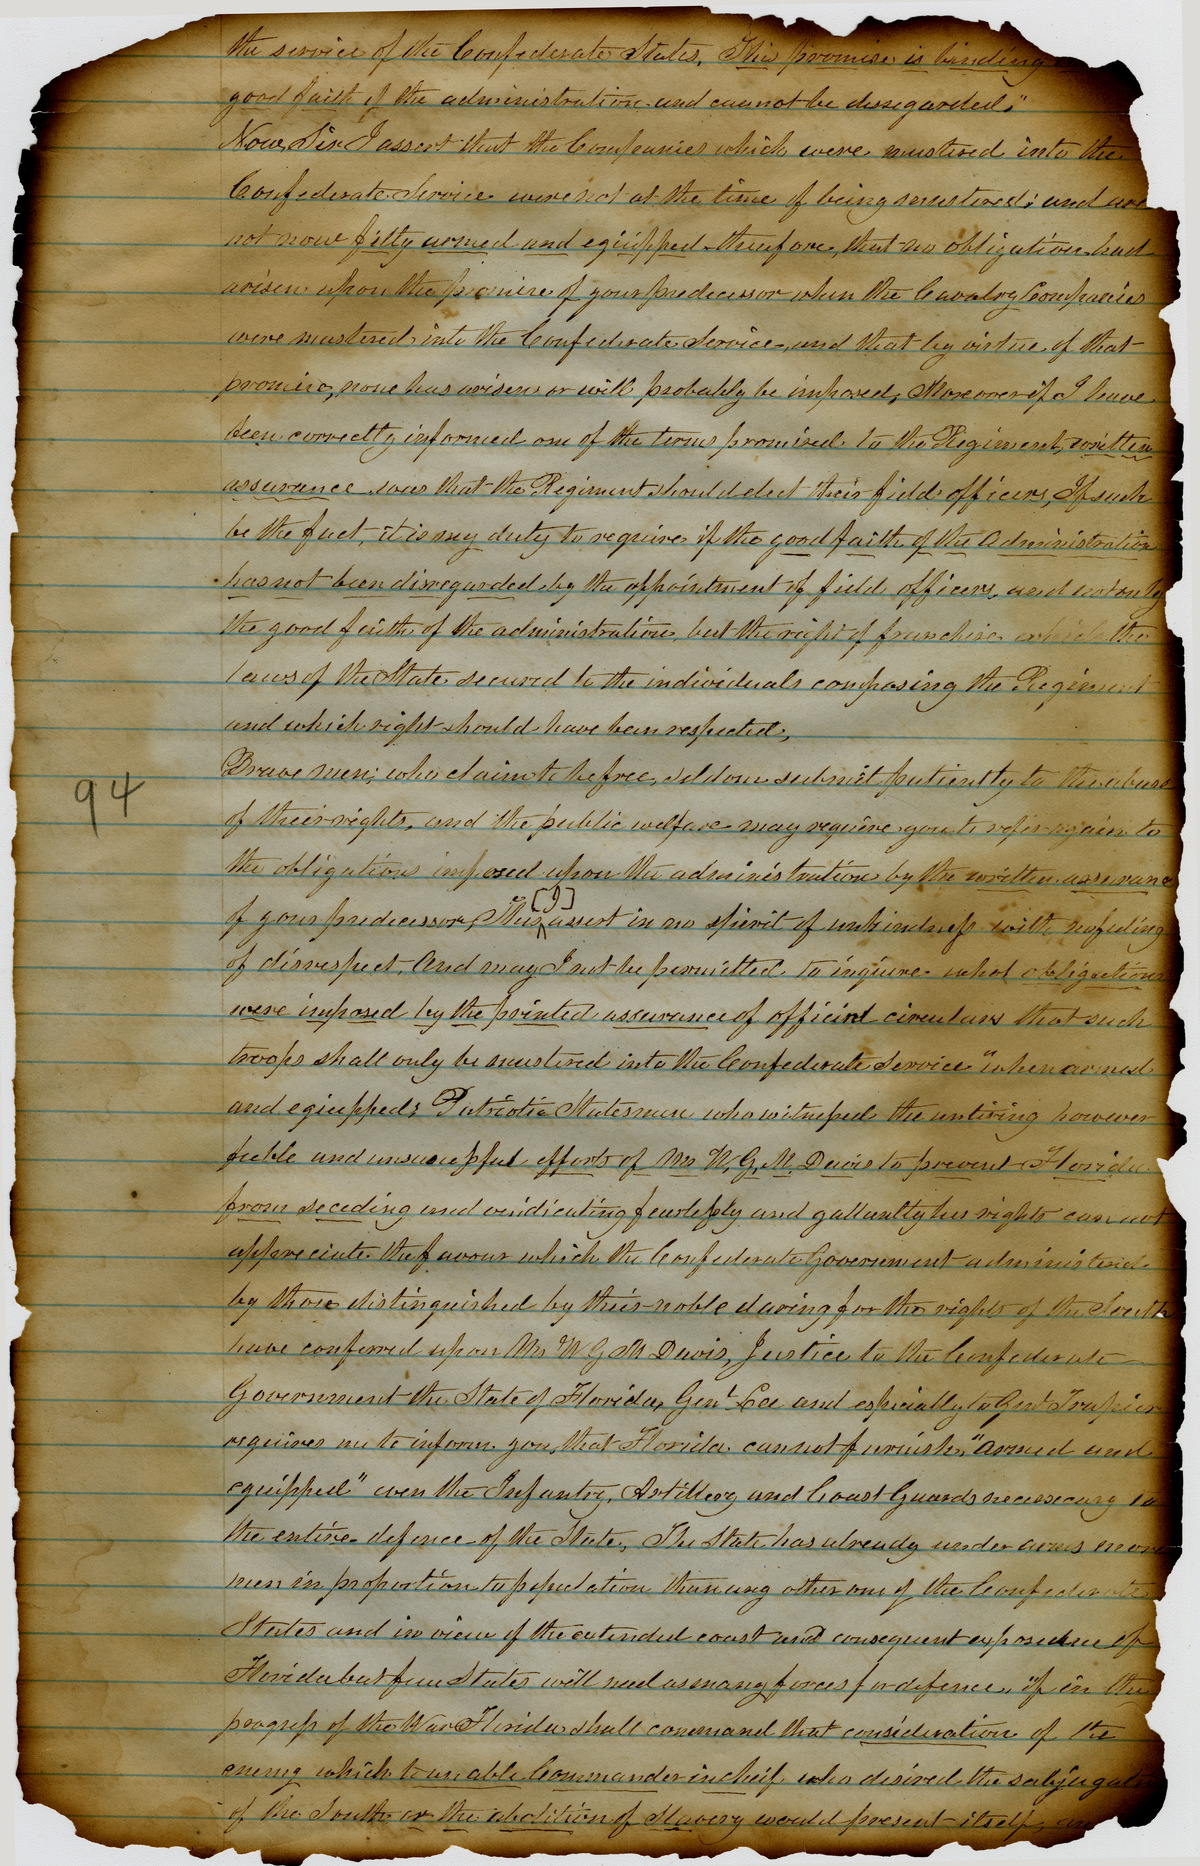 the service of the Confederate States. This promise is binding
good faith of the administration and cannot be dissegarded."
Now, Sir I assert that the Companies which were mustered into the
Confederate Service were not at the time of being mustered; and are
not now fully armed and equipped therefore, that no obligation had
arisen upon the promise of your predecessor when the Cavalry Companies
were mustered into the Confederate Service, and that by virtue of that
promise, none has arisen or will probably be imposed, Moreover if I have
been correctly informed one of the terms promised to the Regiment, written
assurance was that the Regiment should elect their field officers, If such
be the fact, it is my duty to require if the good faith of the Administration
has not been disregarded by the appointment of field officers, and not only
the good faith of the administration, but the right of franchise which the
laws of the State secured to the individuals composing the Regiment
and which right should have been respected,
Brave men, who claim to be free, seldom submit patiently to the abuse
of their rights, and the public welfare may require you to refer again to
the obligations imposed upon the administration by the written assurance
of your predecessor, This [I] assert in no spirit of unkindness with no feeling
of disrespect. And may I not be permitted to inquire what obligations
were imposed by the printed assurance of official circulars that such
troops shall only be mustered into the Confederate Service "when armed
and equipped; Patriotic Statesmen who witnessed the untiring however
feeble and unsuccessful efforts of Mr W. G. M. Davis to prevent Florida
from seceding and vindicating fearlessly and gallantly her rights can not
appreciate the favour which the Confederate Government administered
by those distinguished by their noble daring for the rights of the South
have conferred upon Mr W G M Davis, Justice to the Confederate
Government the State of Florida, Genl Lee and especially to Genl Trapier
requires me to inform you, that Florida cannot furnish, "armed and
equipped" even the Infantry, Artillery and Coast Guards necessecary to
the entire defence of the State, The State has already under arms more
men in proportion to population than any other one of the Confederate
States and in view of the extended coast and consequent exposure of
Florida but few States will need as many forces for defence, if in the
progress of the War Florida shall command that consideration of the
enemy which to an able Commander in cheif who desired the subjugation
of the South or the abolition of Slavery would present itself,
94